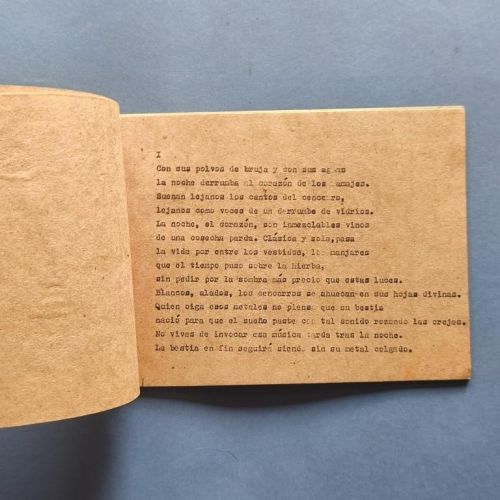 I
Con sus polvos de bruja y con sus aguas
la noche derrumba el corazón de los ramajes.
Suenan lejanos los cantos del cencerro,
lejanos como voces de un derrumbe de vidrios.
La noche, el corazón, son inmezclables vinos
de una cosecha parda. Clásica y sola, pasa
la vida por entre los vestidos, los manjares
que el tiempo puso sobre la hierba,
sin pedir por la sombra más precio que estas luces.
Blancos, alados, los cencerros se ahuecan en sus hojas divinas.
Quien oiga esos metales no piense que su bestia
nació para que el sueño paste con tal sonido rozando las orejas.
No vivas de invocar esa música tarda tras la noche.
La bestia en fin seguirá siendo sin su metal colgado.